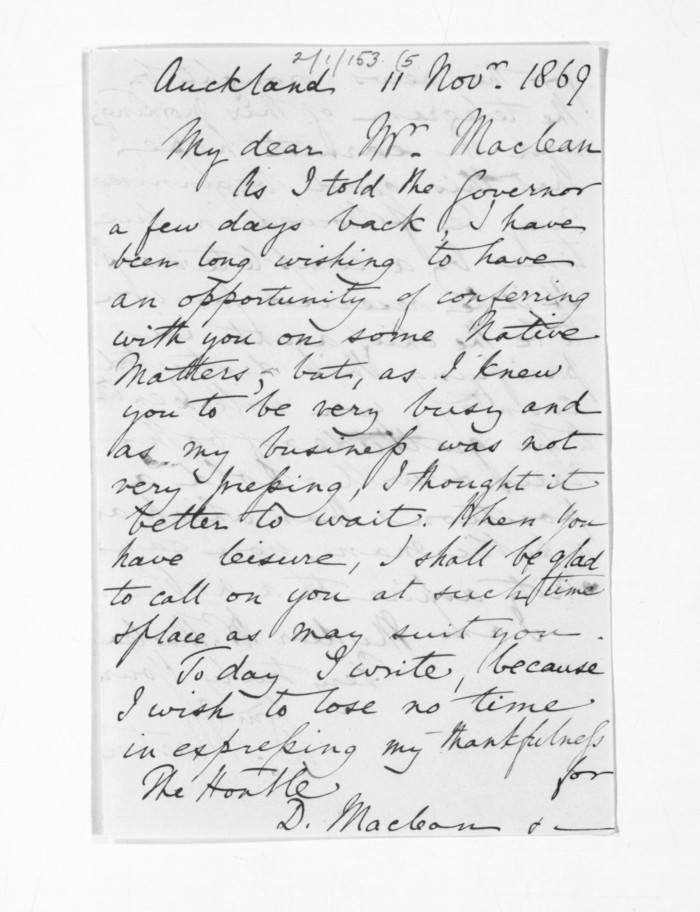 2/1/153 (5
Auckland 11 Novr. 1869
My dear Mr. Maclean
As I told the Governor
a few days back, I have
been long wishing to have
an opportunity of conferring
with you on some Native
Matters; but, as I knew
you to be very busy and
as my business was not
very pressing, I thought it
better to wait. When you
have leisure, I shall be glad
to call on you at such time
& place as may suit you.
Today I write, because
I wish to lose no time
in expressing my thankfulness
for
The Honble
D. Maclean &c